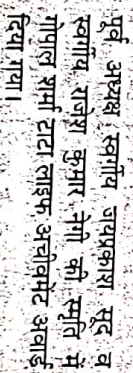 पूर्व अध्यक्ष स्वर्गीय जयप्रकाश सूद व
स्वर्गीय राजेश कुमार नेगी की स्मृति में
गोपाल शर्मा टाटा लाइफ अचीवमेंट अवार्ड
दिया गया।